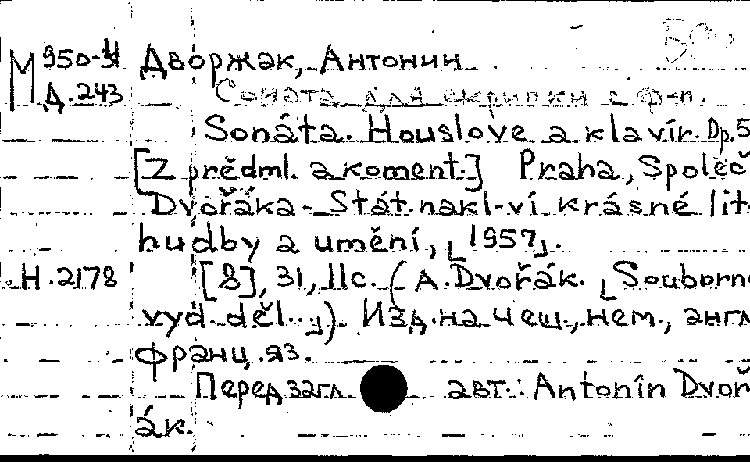 М 950-И Дворжак, Антонин
Д.243 Соната для скрипки с ф-п.
Sonáta. Houslove a klavír. Op.5
[Z předml. a koment.] Praha, Společ
Dvořáka - Stát. nakl-ví krásné lit
hudby a umění, [1957].
Н.2178 [8], 31, 11с. (A.Dvořák. [Souborné
vyd. děl..]). Изд. на чеш., нем., англ
франц. яз.
Перед загл. авт.: Antonín Dvoř
ák.